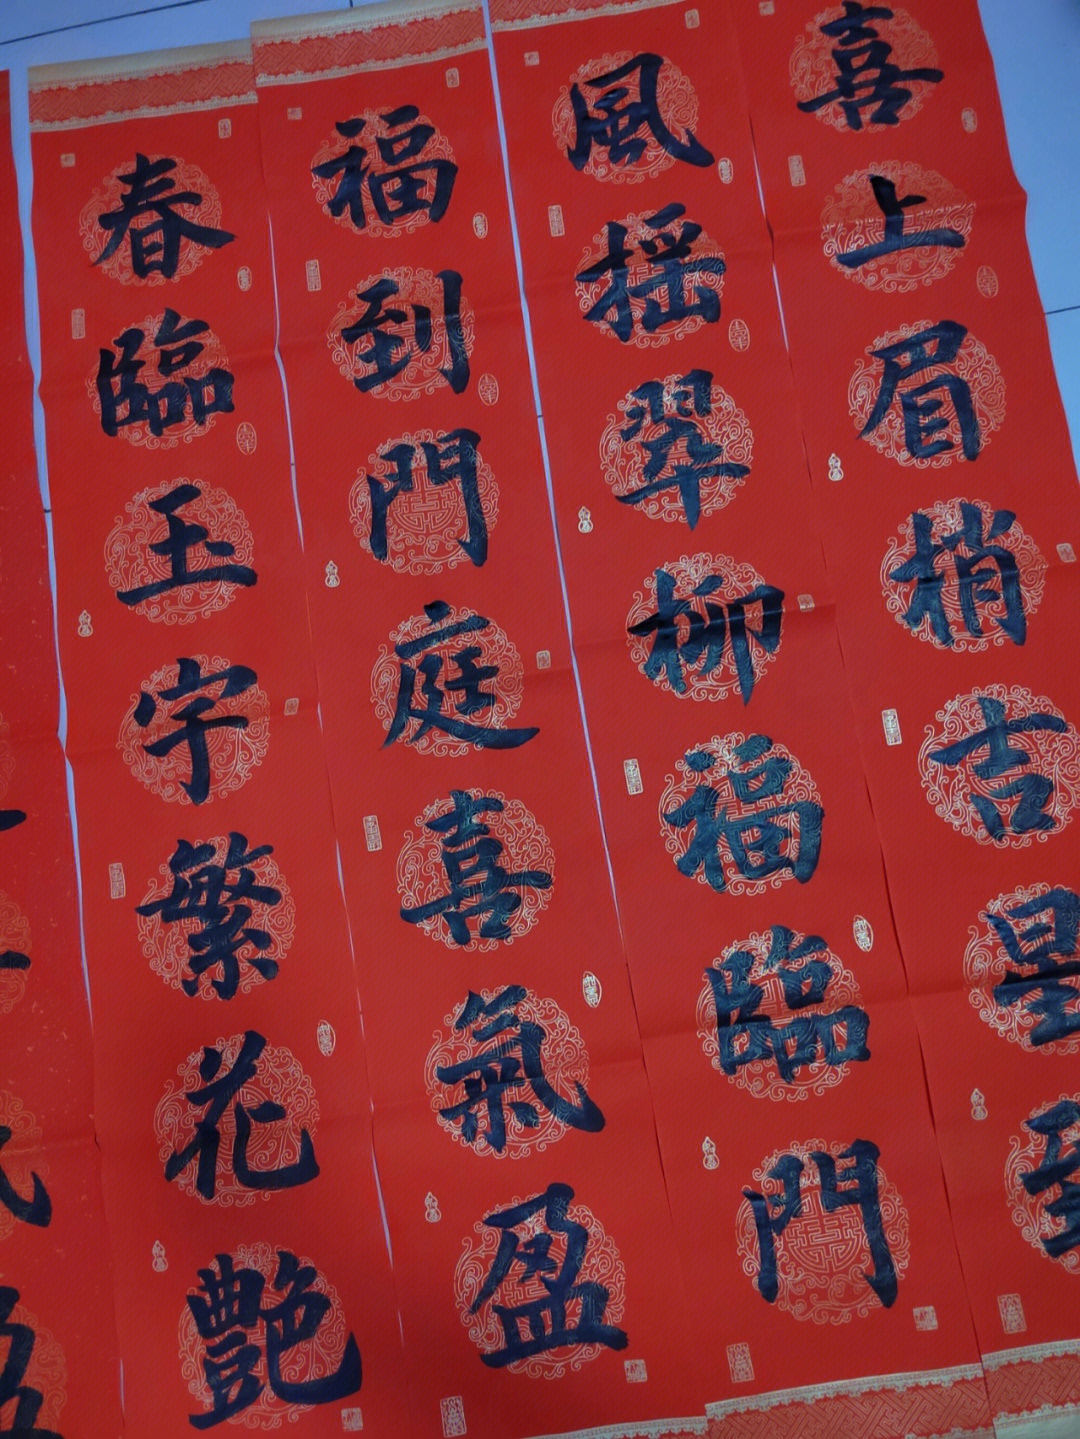 喜上眉梢吉星到
風摇翠柳福臨門
福到門庭喜氣盈
春臨玉宇繁花艶